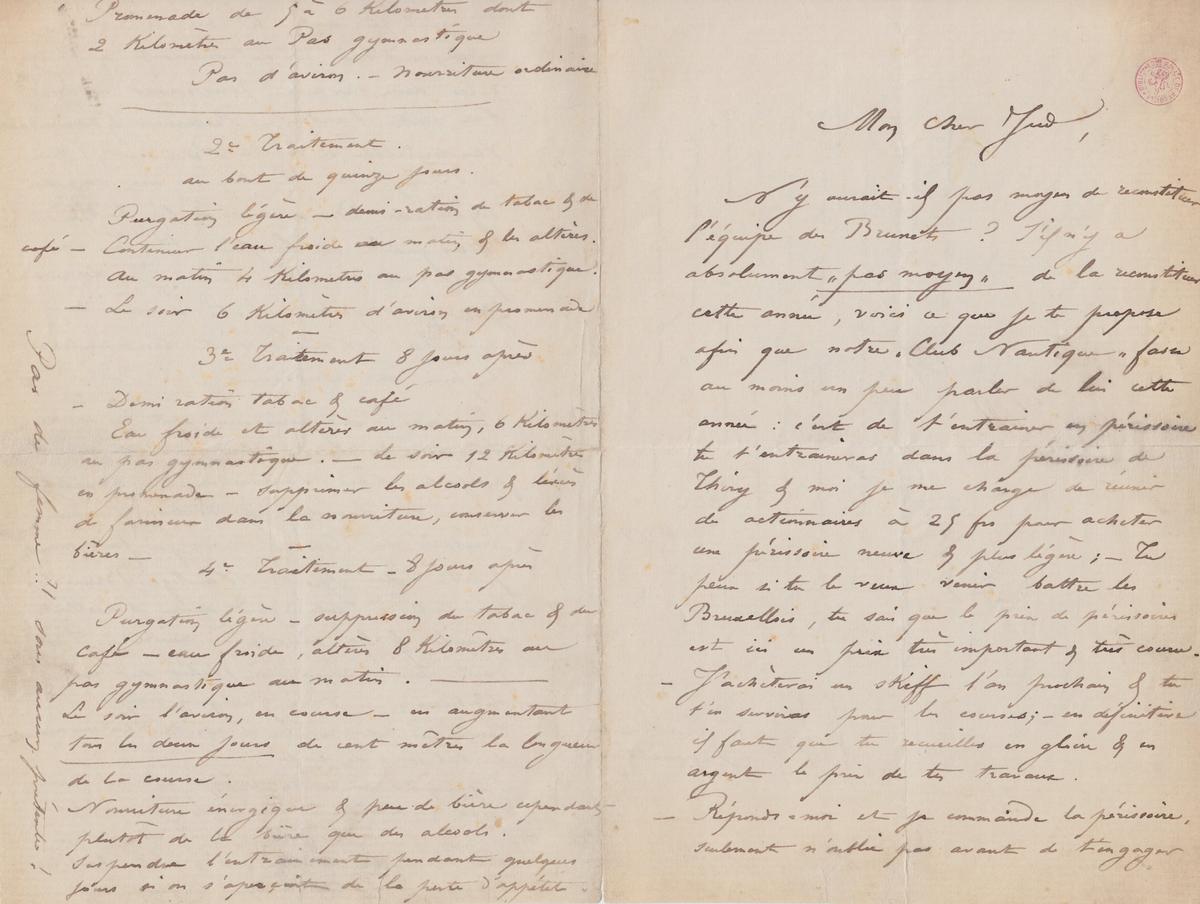 Promenade de 5 à 6 Kilomètres dont
2 Kilomètres au Pas gymnastique
Pas d'aviron. — nourriture ordinaire
2e Traitement.
au bout de quinze jours.
Purgation légère — demi-ration de tabac & de
café — Continuer l'eau froide au matin & les altères.
Au matin 4 Kilomètres au pas gymnastique.
— Le soir 6 Kilomètres d'aviron en promenade
3e Traitement 8 jours après
— Demi ration tabac & café
Eau froide et altères au matin, 6 Kilomètres
au pas gymnastique. — Le soir 12 Kilomètres
en promenade — supprimer les alcools &
de farineux dans la nourriture, conserver les
bières —
4e Traitement — 8 jours après
Purgation légère — suppression du tabac & du
café — eau froide, altères 8 Kilomètres au
pas gymnastique au matin. —
Le soir l'aviron, en course — en augmentant
tous les deux jours de cent mètres la longueur
de la course.
Nourriture énergique & peu de bière cependant
plutôt de la bière que des alcools.
Suspendre l'entrainement pendant quelques
jours si on s'aperçoit de la perte d'appétit.
Pas de femme !! sous aucun prétexte !
Mon cher
N'y aurait-il pas moyen de reconstituer
l'équipe des Brunets ? S'il n'y a
absolument „pas moyen„ de la reconstituer
cette année, voici ce que je te propose
afin que notre „Club Nautique„ fasse
au moins un peu parler de lui cette
année : c'est de t'entrainer en périssoire
te t'entraineras dans la périssoire de
Thiry & moi je me charge de réunir
des actionnaires à 25 frs pour acheter
une périssoire neuve & plus légère ; — Tu
peux si tu le veux venir battre les
Bruxellois, tu sais que le prix de périssoires
est ici un prix très important & très couru.
— J'achèterai un skiff l'an prochain & tu
t'en serviras pour les courses ; — en définitive
il faut que tu recueilles en gloire & en
argent le prix de tes travaux.
— Réponds-moi et je commande la périssoire,
seulement n'oublie pas avant de t'engager